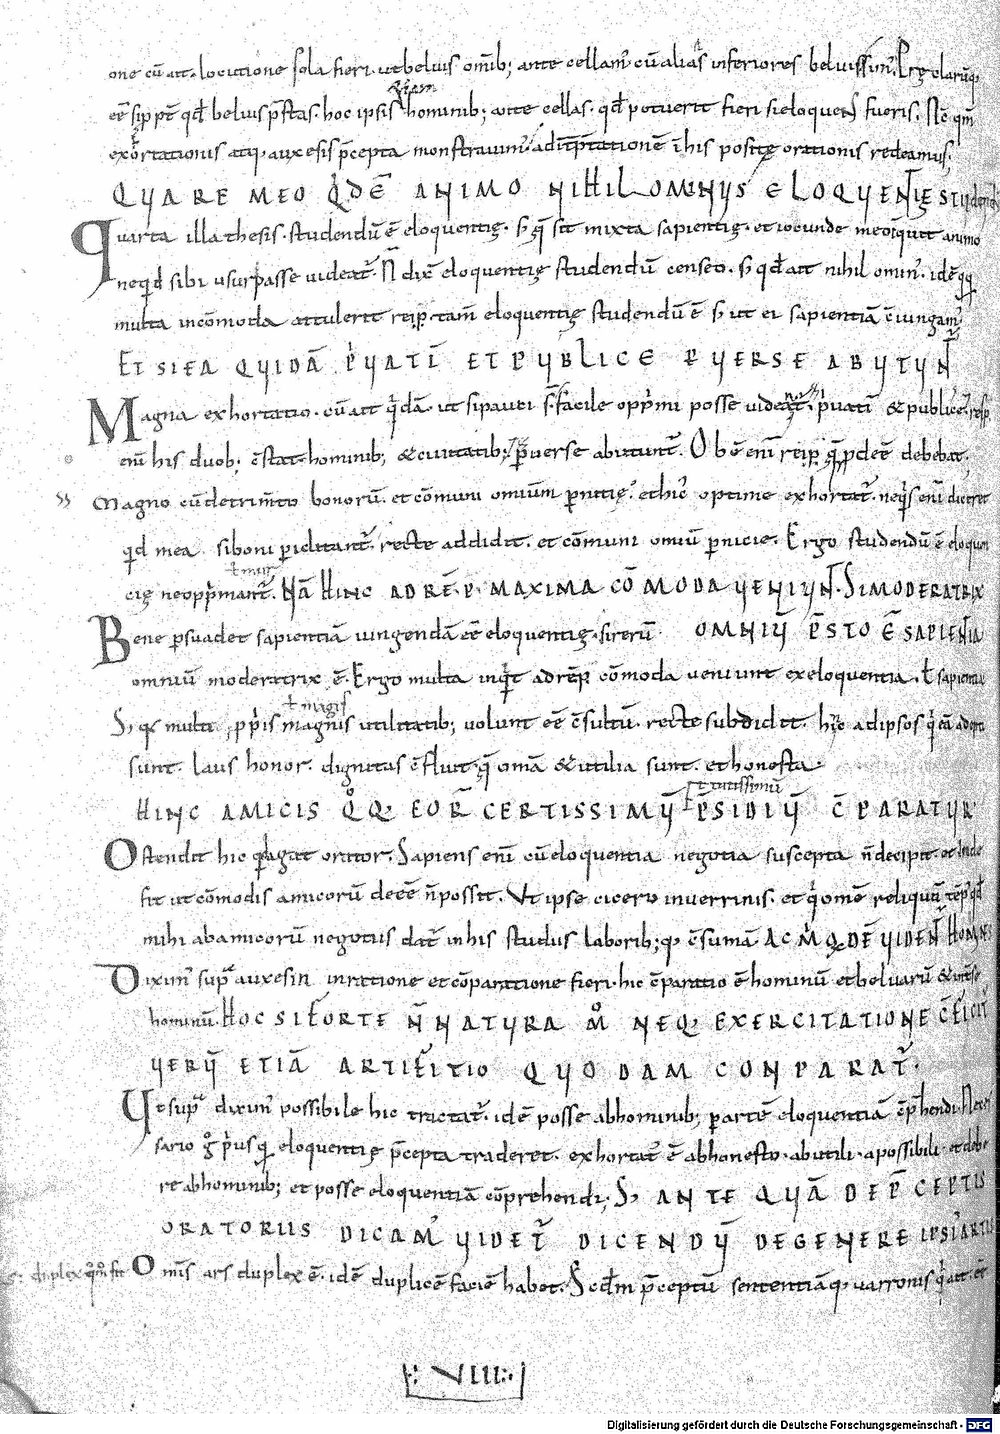 one cū ait. locutione sola fieri. ut beluis om̄ib; ante cellam' cū alias inferiores beluis sim'. Ergo clarūq;
eē sipp̄t qd̄ beluis p̄stas. hoc ipsis hominib; ante cellas. qd̄ potuerit fieri si eloquens fueris. Nc̄ qm̄
exortationis atq; auxesis p̄cepta monstravim'. ad int̄p̄tationē in his posite orationis redeamus.
QVARE MEO Q'DĒ ANIMO NIHIL OMINVS ELOQVENTIE STVdend
Quarta illa thesis. studendū ē eloquentię. s; q̄ sit mixta sapientię. et iocunde meo inquit animo
ne qd sibi usurpasse videat'. N̄ dix̄ eloquentię studendū censeo. s; qd̄ ait nihil omin'. idē qq;
multa incōmoda attulerit reip. tam̄ eloquentię studendū ē s; ut ei sapientiā c̄iungam'
ET SI EA QVIDĀ P'VATĪ ET PVBLICE PVERSE ABVTVN̄
Magna exhortatio. cū ait q'dā. ut si pauci s; facile opp'mi posse videant'. p'vatī & publice. resp.
enī his duob; c̄stat. hominib; & civitatib; pverse abutunt'. Ob ē enī reip. q̄ pdeē debebat.
Magno cū detrim̄to bonorū. et cōmuni omium pnitię. et hic' optime exhortat'. ne q's enī diceret
qd mea si boni piclitant'. recte addidit. et cōmuni omiū pnicie. Ergo studendū ē eloquen
cię ne opp'mant'. NĀ HINC AD RĒ.P. MAXIMA CŌMODA VENIVN̄. SI MODERATRIX
Bene psuadet sapientiā iungendā eē eloquentię. si rerū OMNIV̄ P̄STO Ē SAPIENTIA
omniū moderatrix ē. Ergo multa inq't ad rēp cōmoda veniunt ex eloquentia. t̄ sapientia
t̄ magis
S; q; multa pp'is magnis utilitatib; volunt eē c̄sultū. recte subdidit. hinc ad ipsos q' eā adepti
sunt. laus honor. dignitas c̄fluit. q̄ omā & utilia sunt. et honesta.
t̄ tutissimū
HINC AMICIS Q°Q; EOR̄ CERTISSIMV̄ P̄SIDIV̄ C̄PARATVR
Ostendit hic q'd agat orator. Sapiens enī cū eloquentia negotia suscepta n̄ decipit. et inde
fit ut cōmodis amicorū deeē n̄ possit. Vt ipse cicero in verrinis. et q' omē reliquū tēp' qd̄
mihi ab amicorū negotiis dat' in his studiis laborib;q; c̄sumā AC M' Q'DĒ VIDEN̄ HOMINES
Dixim' sup̄ auxesin in ratione et cōparatione fieri. hic c̄paratio ē hominū et beluarū & int̄ se
hominū. HOC SI FORTE N̄ NATVRA M° NEQ; EXERCITATIONE C̄FICIT'
VERV̄ ETIĀ ARTIFITIO QVODAM CONPARAT'.
Vt sup̄ dixim' possibile hic tractat'. idē posse ab hominib; partē eloquentiā c̄p̄hendi. Neces
sario g° p'usq̄ eloquentię p̄cepta traderet. exhortat' ē ab honesto. ab utili. a possibili. et debe
re ab hominib; et posse eloquentiā cōprehendi. S; ANTE QVĀ DE P̄CEPTIS
ORATORIIS DICAM' VIDET' DICENDV̄ DE GENERE IPSI' ARTIS
Om̄is ars duplex ē. idē duplicē faciē habet. Scd̄m p̄ceptū sententiāq; varronis q' ait. et
VIII
Digitalisierung gefördert durch die Deutsche Forschungsgemeinschaft - DFG